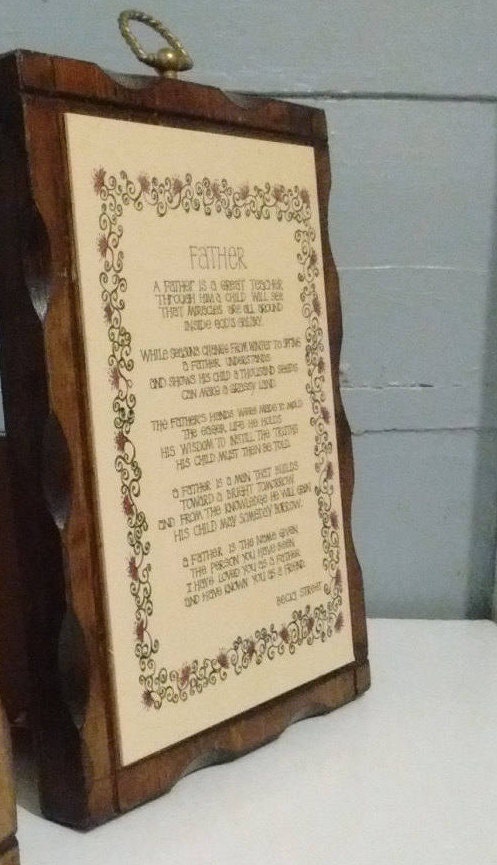 FATHER
A FATHER IS A GREAT TEACHER
THROUGH HIM A CHILD WILL SEE
THAT MIRACLES ARE ALL AROUND
INSIDE GOD'S GALAXY.
WHILE SEASONS CHANGE FROM WINTER TO SPRING
A FATHER UNDERSTANDS
AND SHOWS HIS CHILD A THOUSAND SEEDS
CAN MAKE A GRASSY LAND.
THE FATHER'S HANDS WERE MADE TO MOLD
THE EAGER LIFE HE HOLDS
HIS WISDOM TO INSTILL THE TRUTHS
HIS CHILD MUST THEN BE TOLD.
A FATHER IS A MAN THAT BUILDS
TOWARD A BRIGHT TOMORROW
AND FROM THE KNOWLEDGE HE WILL GAIN
HIS CHILD MAY SOMEDAY BORROW.
A FATHER IS THE NAME GIVEN
THE PERSON YOU HAVE BEEN
I HAVE LOVED YOU AS A FATHER
AND HAVE KNOWN YOU AS A FRIEND.
BECKY STREET